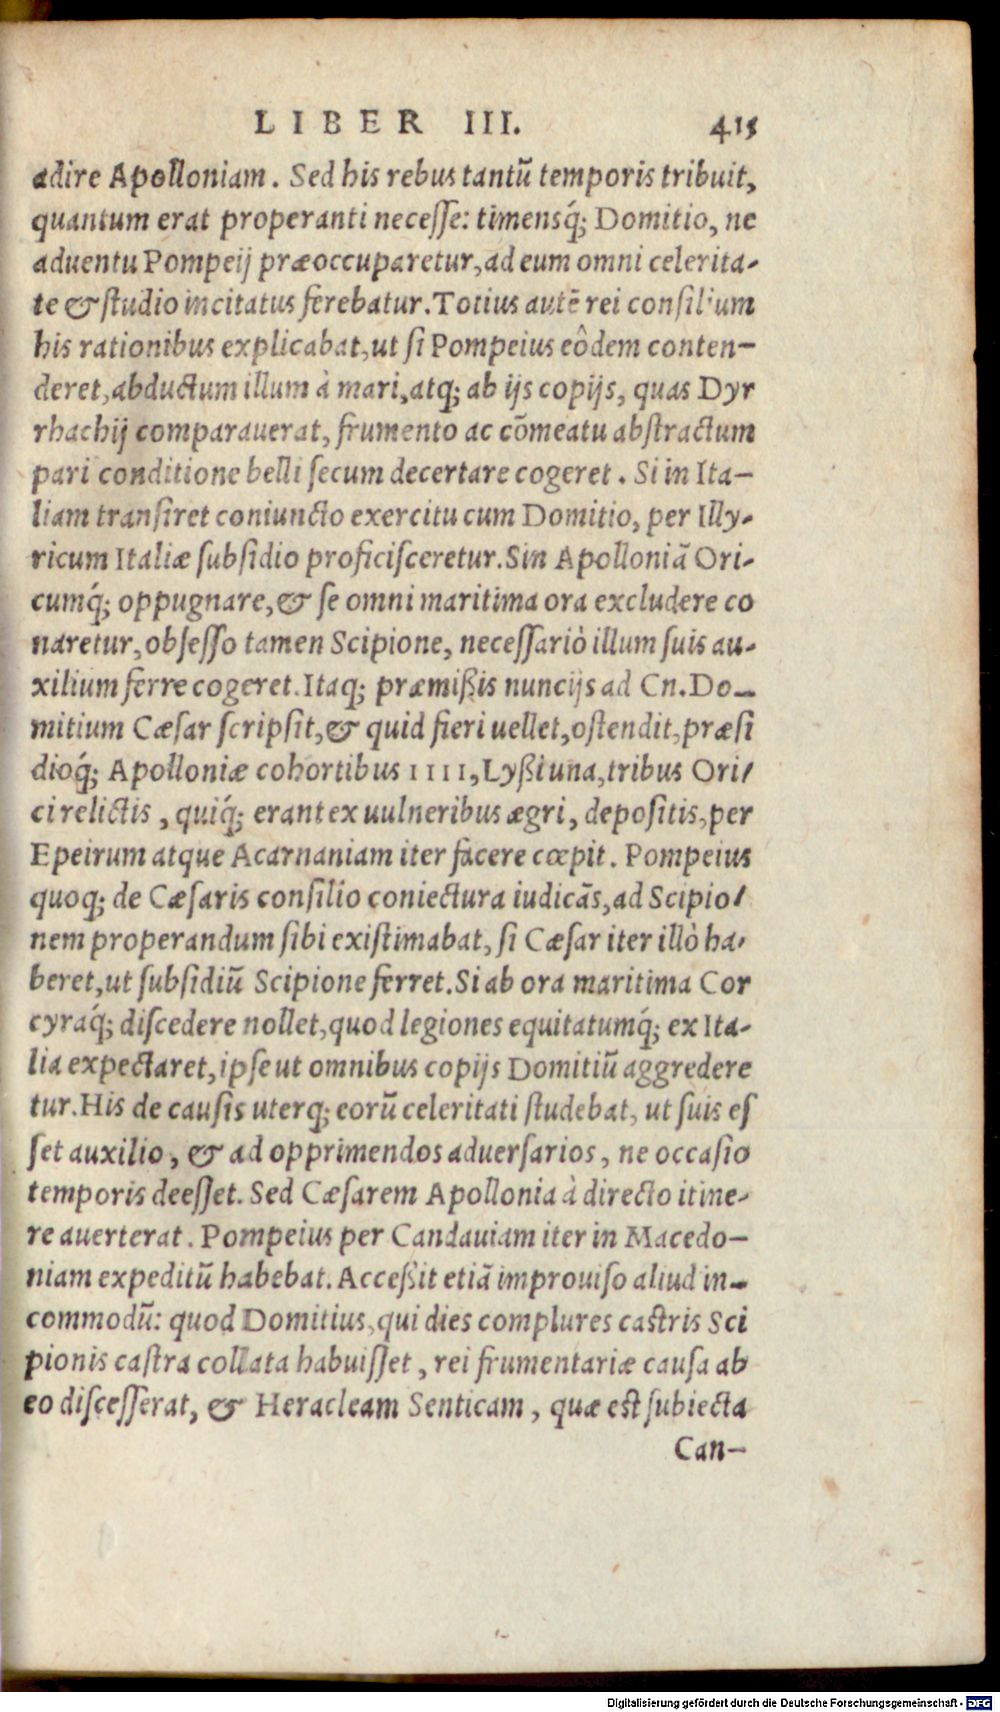 LIBER III. 415
adire Apolloniam. Sed his rebus tantũ temporis tribuit,
quantum erat properanti necesse: timensq́; Domitio, ne
aduentu Pompeij præoccuparetur, ad eum omni celerita-
te & studio incitatus ferebatur. Totius autẽ rei consilium
his rationibus explicabat, ut si Pompeius eôdem conten-
deret, abductum illum à mari, atq; ab ijs copijs, quas Dyr
rhachij comparauerat, frumento ac cõmeatu abstractum
pari conditione belli secum decertare cogeret. Si in Ita-
liam transiret coniuncto exercitu cum Domitio, per Illy-
ricum Italiæ subsidio proficisceretur. Sin Apolloniã Ori-
cumq́; oppugnare, & se omni maritima ora excludere co
naretur, obsesso tamen Scipione, necessariò illum suis au-
xilium ferre cogeret. Itaq; præmißis nuncijs ad Cn. Do-
mitium Cæsar scripsit, & quid fieri uellet, ostendit, præsi
dioq́; Apolloniæ cohortibus IIII, Lyßi una, tribus Ori-
ci relictis, quiq́; erant ex uulneribus ægri, depositis, per
Epeirum atque Acarnaniam iter facere cœpit. Pompeius
quoq; de Cæsaris consilio coniectura iudicãs, ad Scipio-
nem properandum sibi existimabat, si Cæsar iter illò ha-
beret, ut subsidiũ Scipione ferret. Si ab ora maritima Cor
cyraq́; discedere nollet, quod legiones equitatumq́; ex Ita-
lia expectaret, ipse ut omnibus copijs Domitiũ aggredere
tur. His de causis uterq; eorũ celeritati studebat, ut suis es
set auxilio, & ad opprimendos aduersarios, ne occasio
temporis deesset. Sed Cæsarem Apollonia à directo itine-
re auerterat. Pompeius per Candauiam iter in Macedo-
niam expeditũ habebat. Acceßit etiã improuiso aliud in-
commodũ: quod Domitius, qui dies complures castris Sci
pionis castra collata habuisset, rei frumentariæ causa ab
eo discesserat, & Heracleam Senticam, quæ est subiecta
Can-
Digitalisierung gefördert durch die Deutsche Forschungsgemeinschaft - DFG